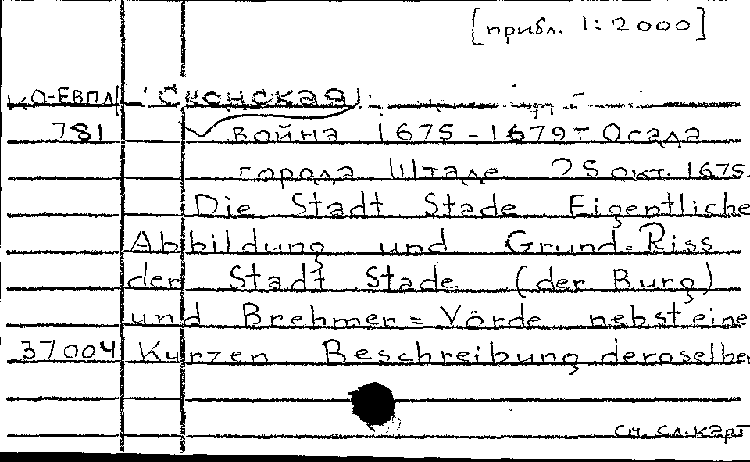 [прибл. 1:2000]
КО-ЕВПЛ Сконская
781 война 1675-1679 - Осада
города Штаде 25 окт. 1675.
Die Stadt Stade Eigentliche
Abbildung und Grund=Riss
der Stadt Stade (der Burg)
und Brehmer=Vörde nebst eine
37004 Kurzen Beschreibung deroselben
См. сл. карт